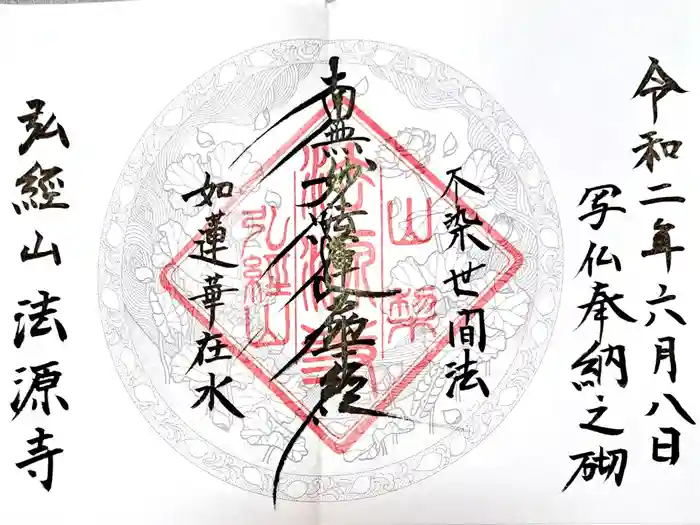 令和二年六月八日
写仏奉納之砌
不染世間法
南無妙法蓮華経
如蓮華在水
弘經山法源寺
山梨
法源寺
弘經山